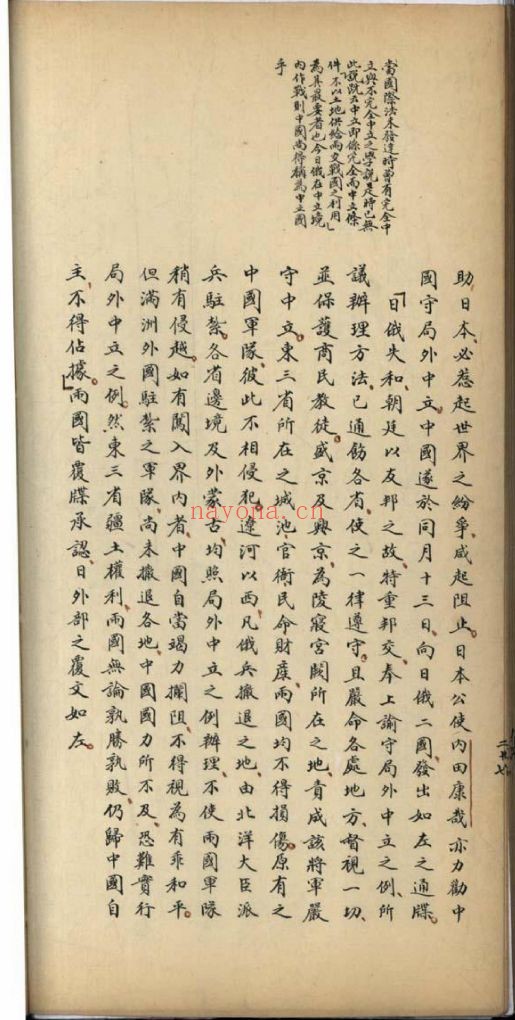 當國際法未發達時曾有完全中
立與不完全中立之學說是時已無
此說既云中立即係完全而中立條
件不以土地供給兩交戰國之利用
為其最要者也今日俄在中立境
內作戰則中國尚得稱為中立國
乎
助日本、必惹起世界之紛爭、咸起阻止。日本公使內田康哉亦力勸中
國守局外中立。中國遂於同月十三日、向日俄二國、發出如左之通牒。
「日俄失和、朝廷以友邦之故、特重邦交、奉上諭守局外中立之例、所
議辦理方法、已通飭各省、使之一律遵守。且嚴命各處地方、督視一切、
並保護商民教徒。盛京及興京、為陵寢宮闕所在之地、責成該將軍嚴
守中立。東三省所在之城池、官衙民命財產、兩國均不得損傷。原有之
中國軍隊、彼此不相侵犯。遼河以西、凡俄兵撤退之地、由北洋大臣派
兵駐紮。各省邊境及外蒙古、均照局外中立之例辦理、不使兩國軍隊
稍有侵越。如有闖入界內者、中國自當竭力攔阻、不得視為有乖和平。
但滿洲外國駐紮之軍隊、尚未撤退各地、中國國力所不及、恐難實行
局外中立之例。然東三省疆土權利、兩國無論孰勝孰敗、仍歸中國自
主、不得佔據。」兩國皆覆牒承認、日外部之覆文如左。
nayona.cn